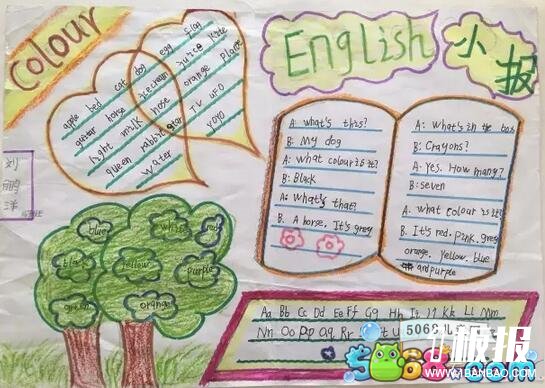 colour
English 小报
apple bed cat dog egg flag
guitar horse icecream juice kite
light milk nose orange plane
queen rabbit star TV UFO
water YOYO
A: what's this?
B: My dog
A: what colour is it?
B: Black
A: What's that?
B. A horse. It's grey
A: What's in the box
B: Crayons?
A: Yes. How many?
B: seven
A. what colour is it?
B. It's red. Pink. grey
orange. yellow. blue
and purple
刘
鹏
洋
blue
white
red
black
yellow
purple
green
orange
Aa Bb Cc Dd Ee Ff Gg Hh Ii Jj Kk Ll Mm
Nn Oo Pp Qq Rr
板报
WWW.1BANBAO.COM